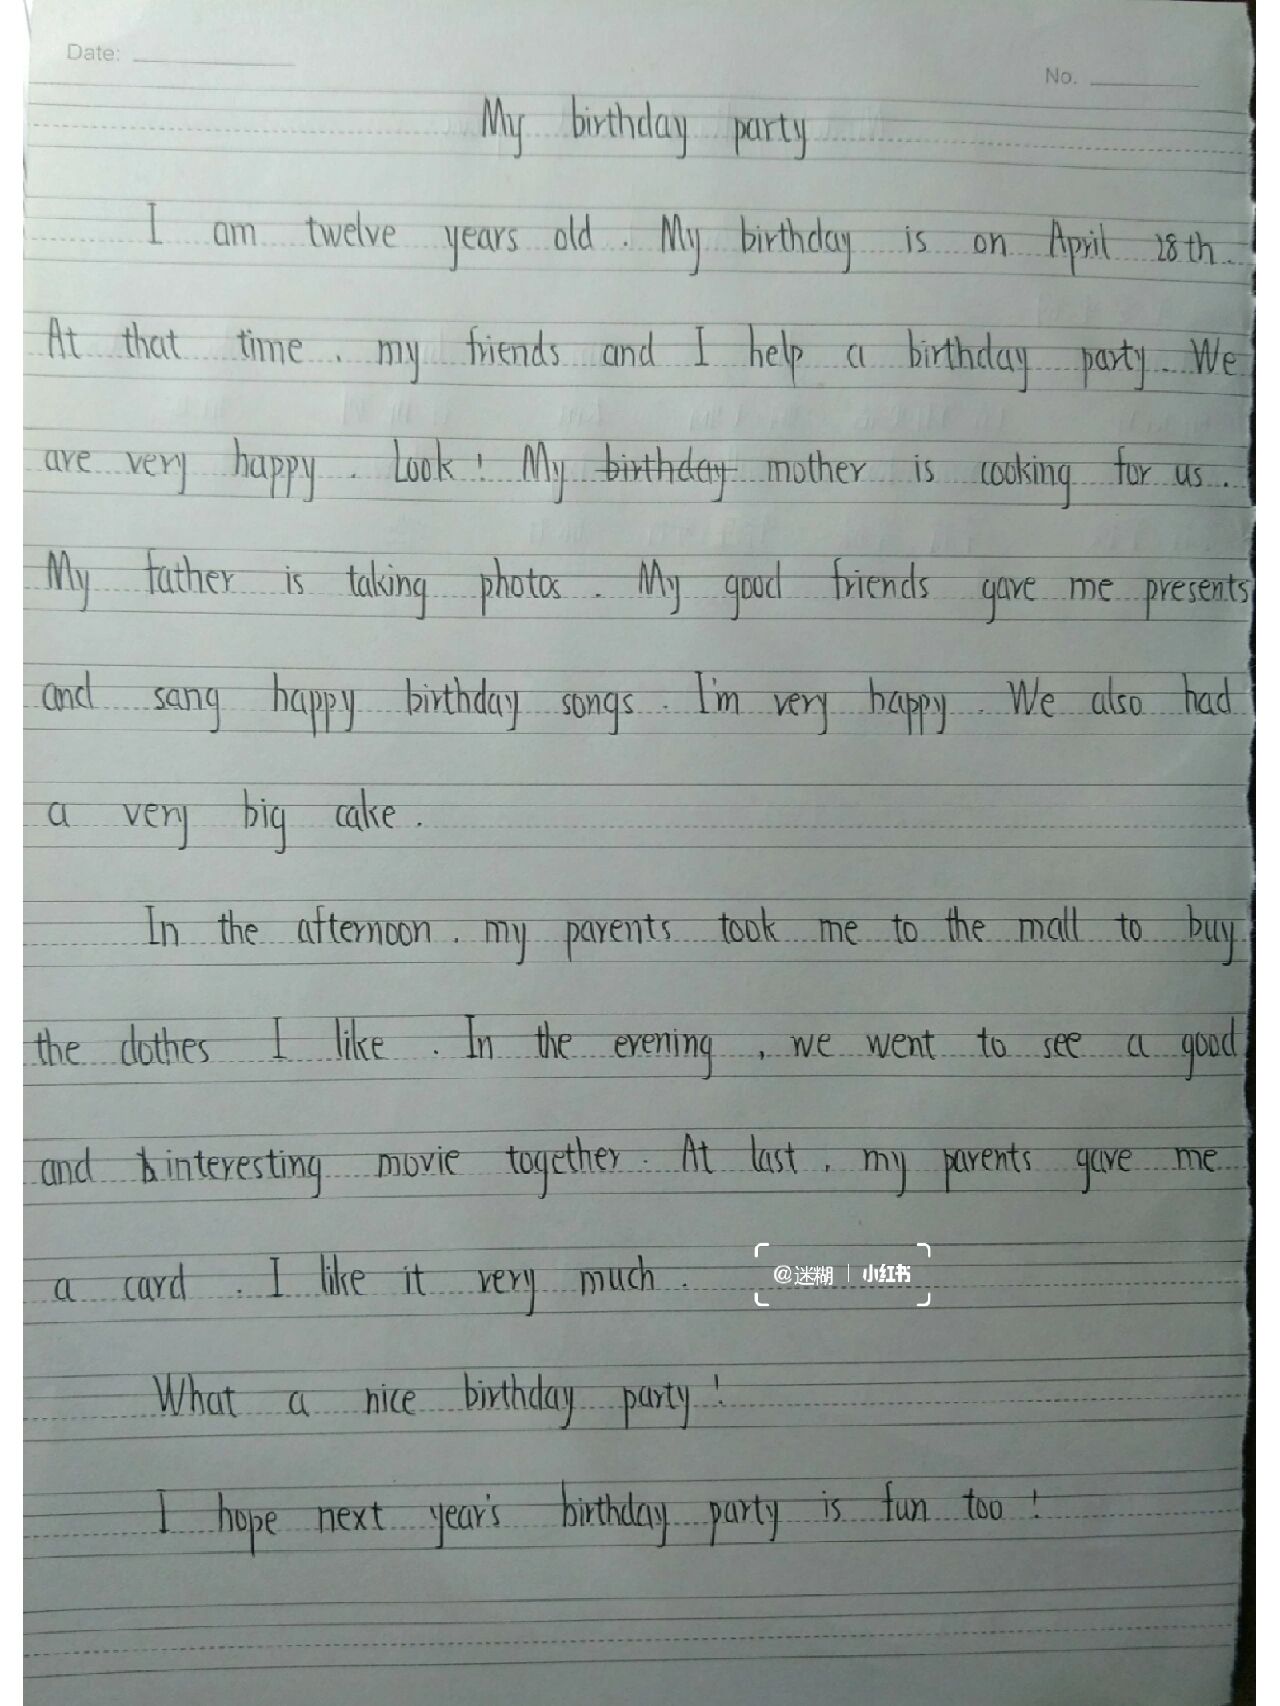 Date:
No.
My birthday party
I am twelve years old. My birthday is on April 28th.
At that time, my friends and I help a birthday party. We
are very happy. Look! My birthday mother is cooking for us.
My father is taking photos. My good friends gave me presents
and sang happy birthday songs. I'm very happy. We also had
a very big cake.
In the afternoon, my parents took me to the mall to buy
the clothes I like. In the evening, we went to see a good
and interesting movie together. At last, my parents gave me
a card. I like it very much.
@迷糊 | 小红书
What a nice birthday party!
I hope next year's birthday party is fun too!